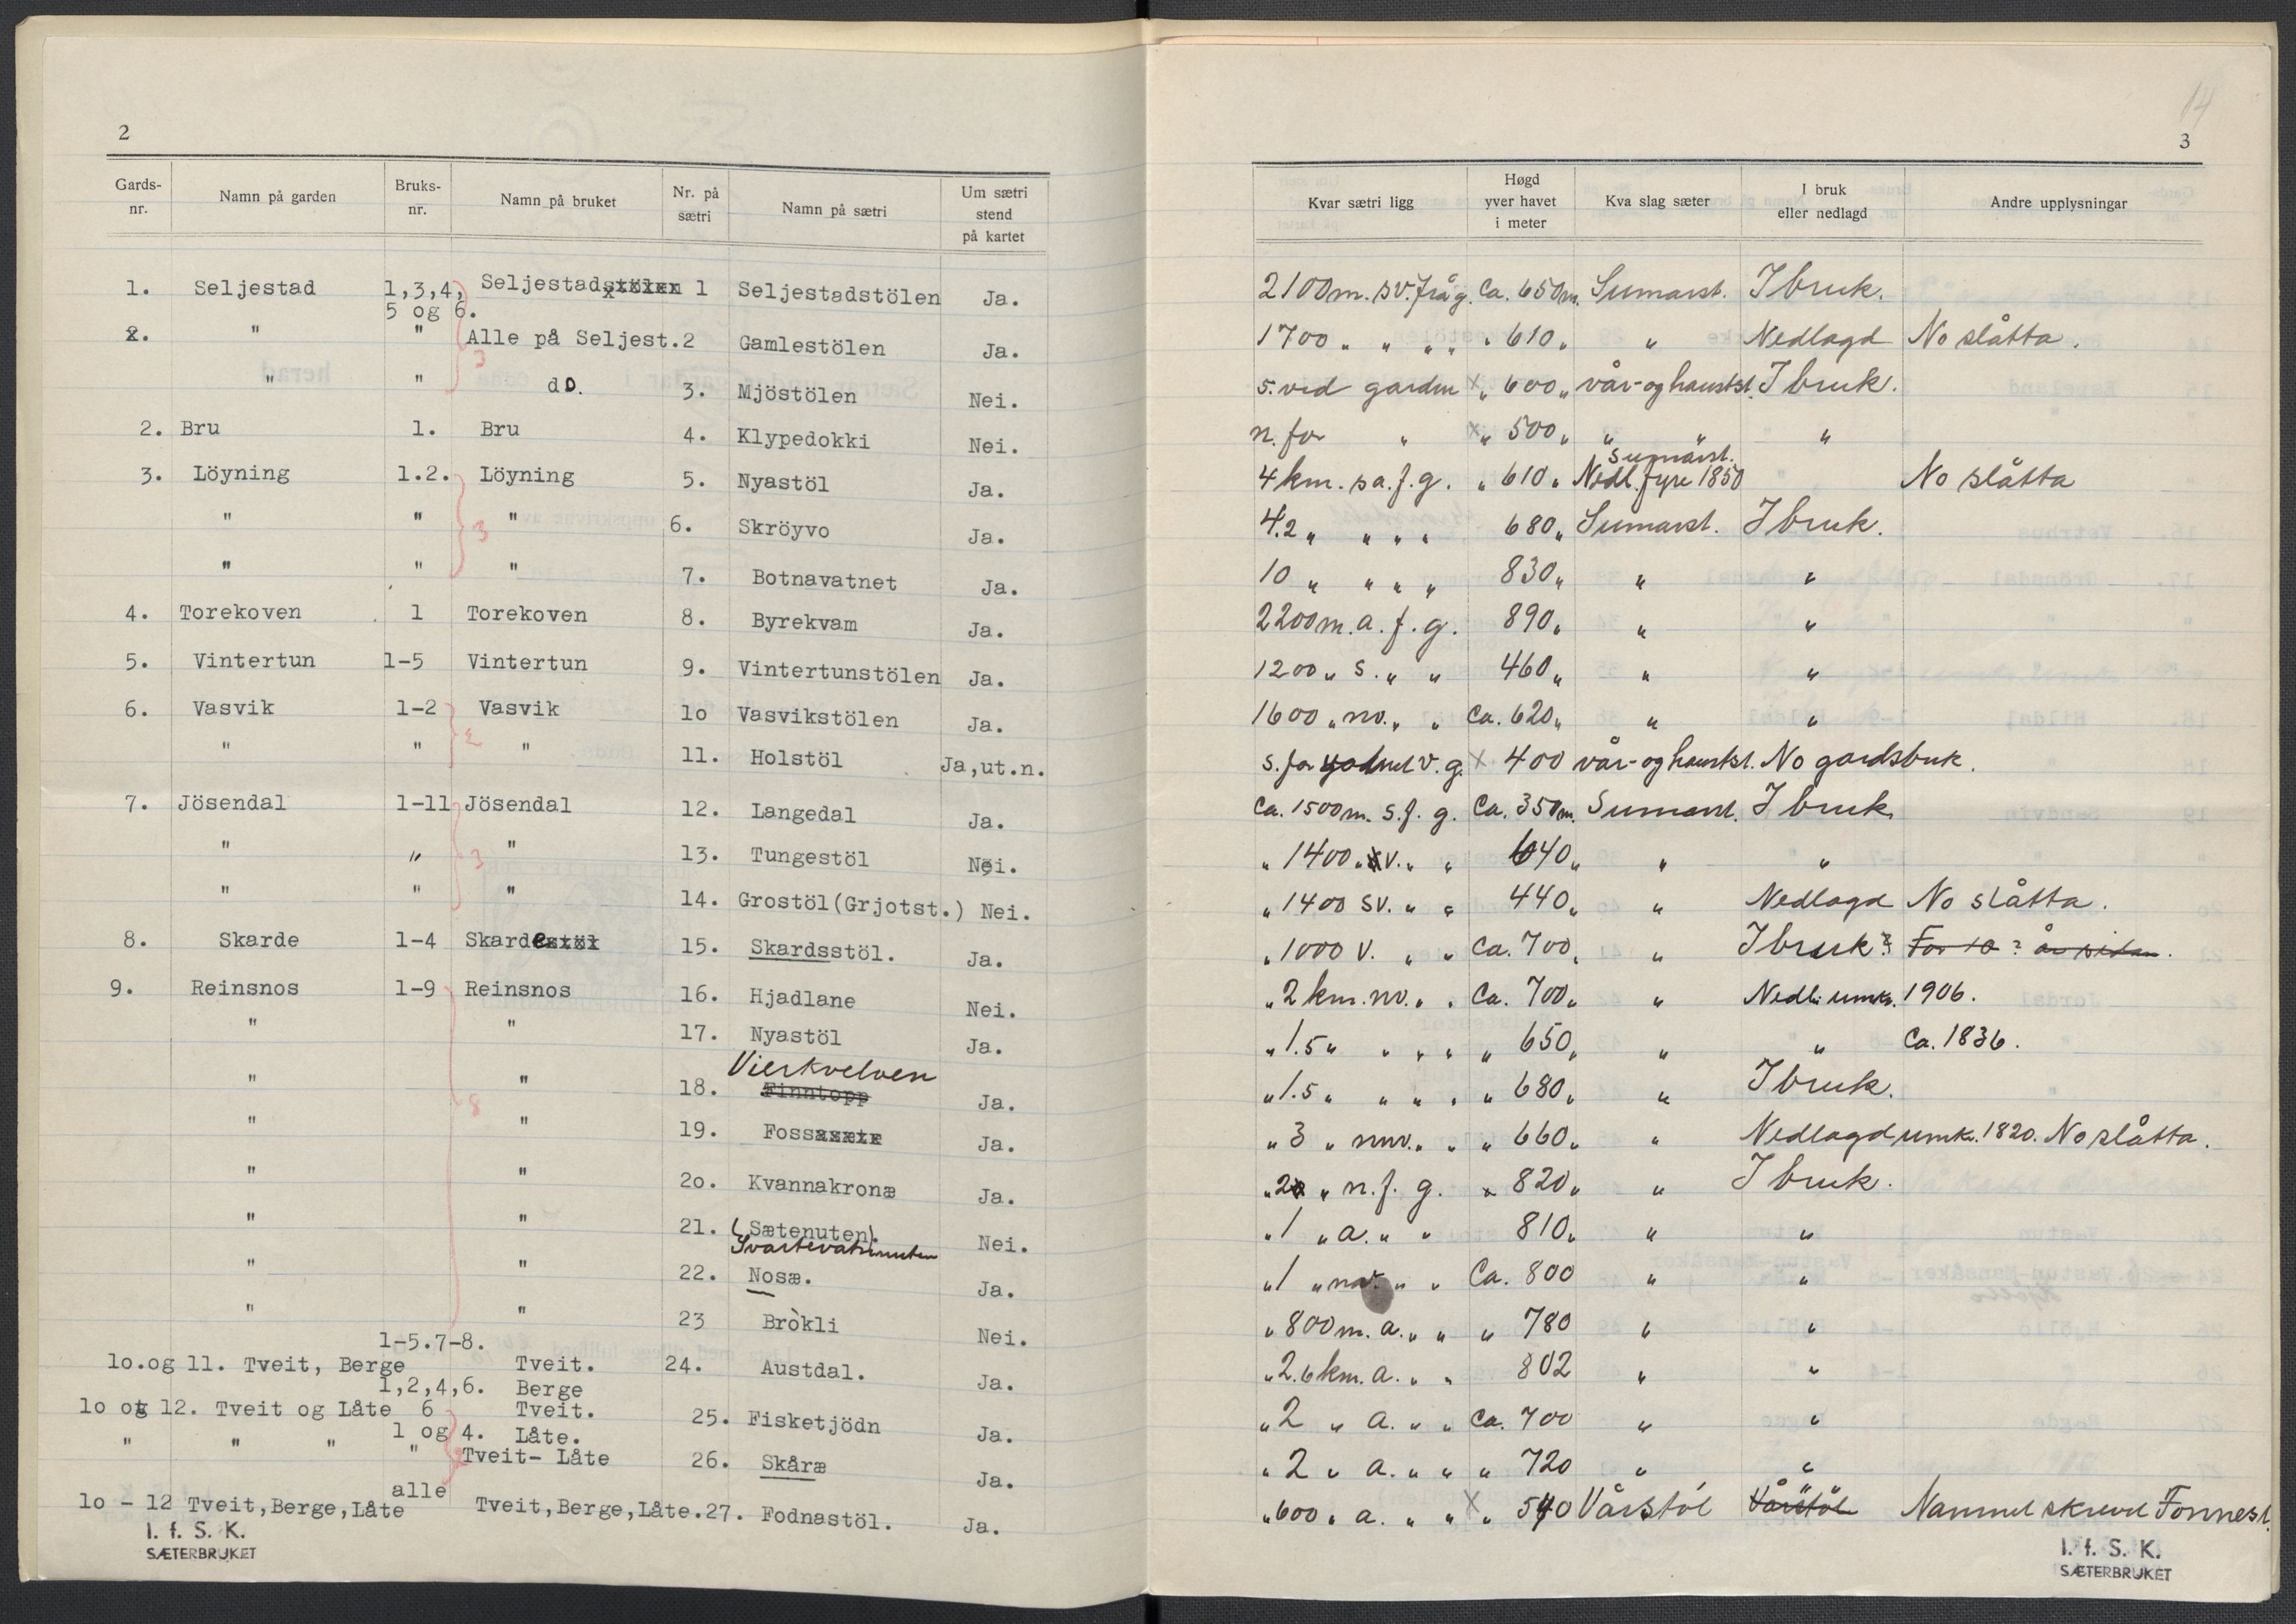 2
Gards-nr. Namn på garden Bruks-nr. Namn på bruket Nr. på sætri Namn på sætri Um sætri stend på kartet
1. Seljestad 1,3,4, Seljestadstölen 1 Seljestadstölen Ja.
5 og 6.
2. " " Alle på Seljest. 2 Gamlestölen Ja.
" " do. 3. Mjöstölen Nei.
2. Bru 1. Bru 4. Klypedokki Nei.
3. Löyning 1.2. Löyning 5. Nyastöl Ja.
" " " 6. Skröyvo Ja.
" " " 7. Botnavatnet Ja.
4. Torekoven 1 Torekoven 8. Byrekvam Ja.
5. Vintertun 1-5 Vintertun 9. Vintertunstölen Ja.
6. Vasvik 1-2 Vasvik 1o Vasvikstölen Ja.
" " " 11. Holstöl Ja,ut.n.
7. Jösendal 1-11 Jösendal 12. Langedal Ja.
" " " 13. Tungestöl Nei.
" " " 14. Grostöl(Grjotst.) Nei.
8. Skarde 1-4 Skardestöl 15. Skardsstöl. Ja.
9. Reinsnos 1-9 Reinsnos 16. Hjadlane Nei.
" " 17. Nyastöl Ja.
Vierkvelven
" " 18. Finntopp Ja.
" " 19. Fosssætr Ja.
" " 2o. Kvannakronæ Ja.
" " 21. (Sætenuten). Nei.
Svartevatnnuten
" " 22. Nosæ. Ja.
" " 23 Bròkli Nei.
1-5.7-8.
1o.og 11. Tveit, Berge Tveit. 24. Austdal. Ja.
1,2,4,6. Berge
1o og 12. Tveit og Låte 6 Tveit. 25. Fisketjödn Ja.
1 og 4. Låte.
" " " " Tveit- Låte 26. Skåræ Ja.
alle
1o - 12 Tveit,Berge,Låte Tveit,Berge,Låte. 27. Fodnastöl. Ja.
I. f. S. K.
SÆTERBRUKET
14
3
Kvar sætri ligg Høgd yver havet i meter Kva slag sæter I bruk eller nedlagd Andre upplysningar
2100 m. sv. frå g. Ca. 650 m. Sumarst. I bruk.
1700 " " " " " 610 " " Nedlagd No slåtta.
s. ved garden x " 600 " vår- og haustst. I bruk.
n. for " x " 500 " " " "
Sumarst.
4 km. sa. f. g. " 610 " Nedl. fyre 1850 No slåtta
4.2 " " " " 680 " Sumarst. I bruk.
10 " " " " 830 " " "
2200 m. a. f. g. 890 " " "
1200 " s. " " 460 " " "
1600 " nv. " " Ca. 620 " " "
s. for v. g. x 400 vår- og haustst. No gardsbruk.
Ca. 1500 m. s. f. g. Ca. 350 m. Sumarst. I bruk
" 1400 " v. " " 640 " " "
" 1400 sv. " " 440 " " Nedlagd No slåtta.
" 1000 v. " " Ca. 700 " " I bruk? For 10? år sidan.
" 2 km. nv. " " Ca. 700 " " Nedl. umkr. 1906.
" 1.5 " " " " " 650 " " " Ca. 1836.
" 1.5 " " " " " 680 " " I bruk.
" 3 " nnv. " " " 660 " " Nedlagd umkr. 1820. No slåtta.
" 2 " n. f. g. " 820 " " I bruk.
" 1 " a. " " 810 " " "
" 1 " nv. " " Ca. 800 " "
" 800 m. a. " " " 780 " "
" 2.6 km. a. " " 802 " "
" 2 " a. " " Ca. 700 " "
" 2 " a. " " " 720 " "
" 600 " a. " " x " 540 Vårstöl Vårstöl Namnet skrevet Fonnest.
I. f. S. K.
SÆTERBRUKET